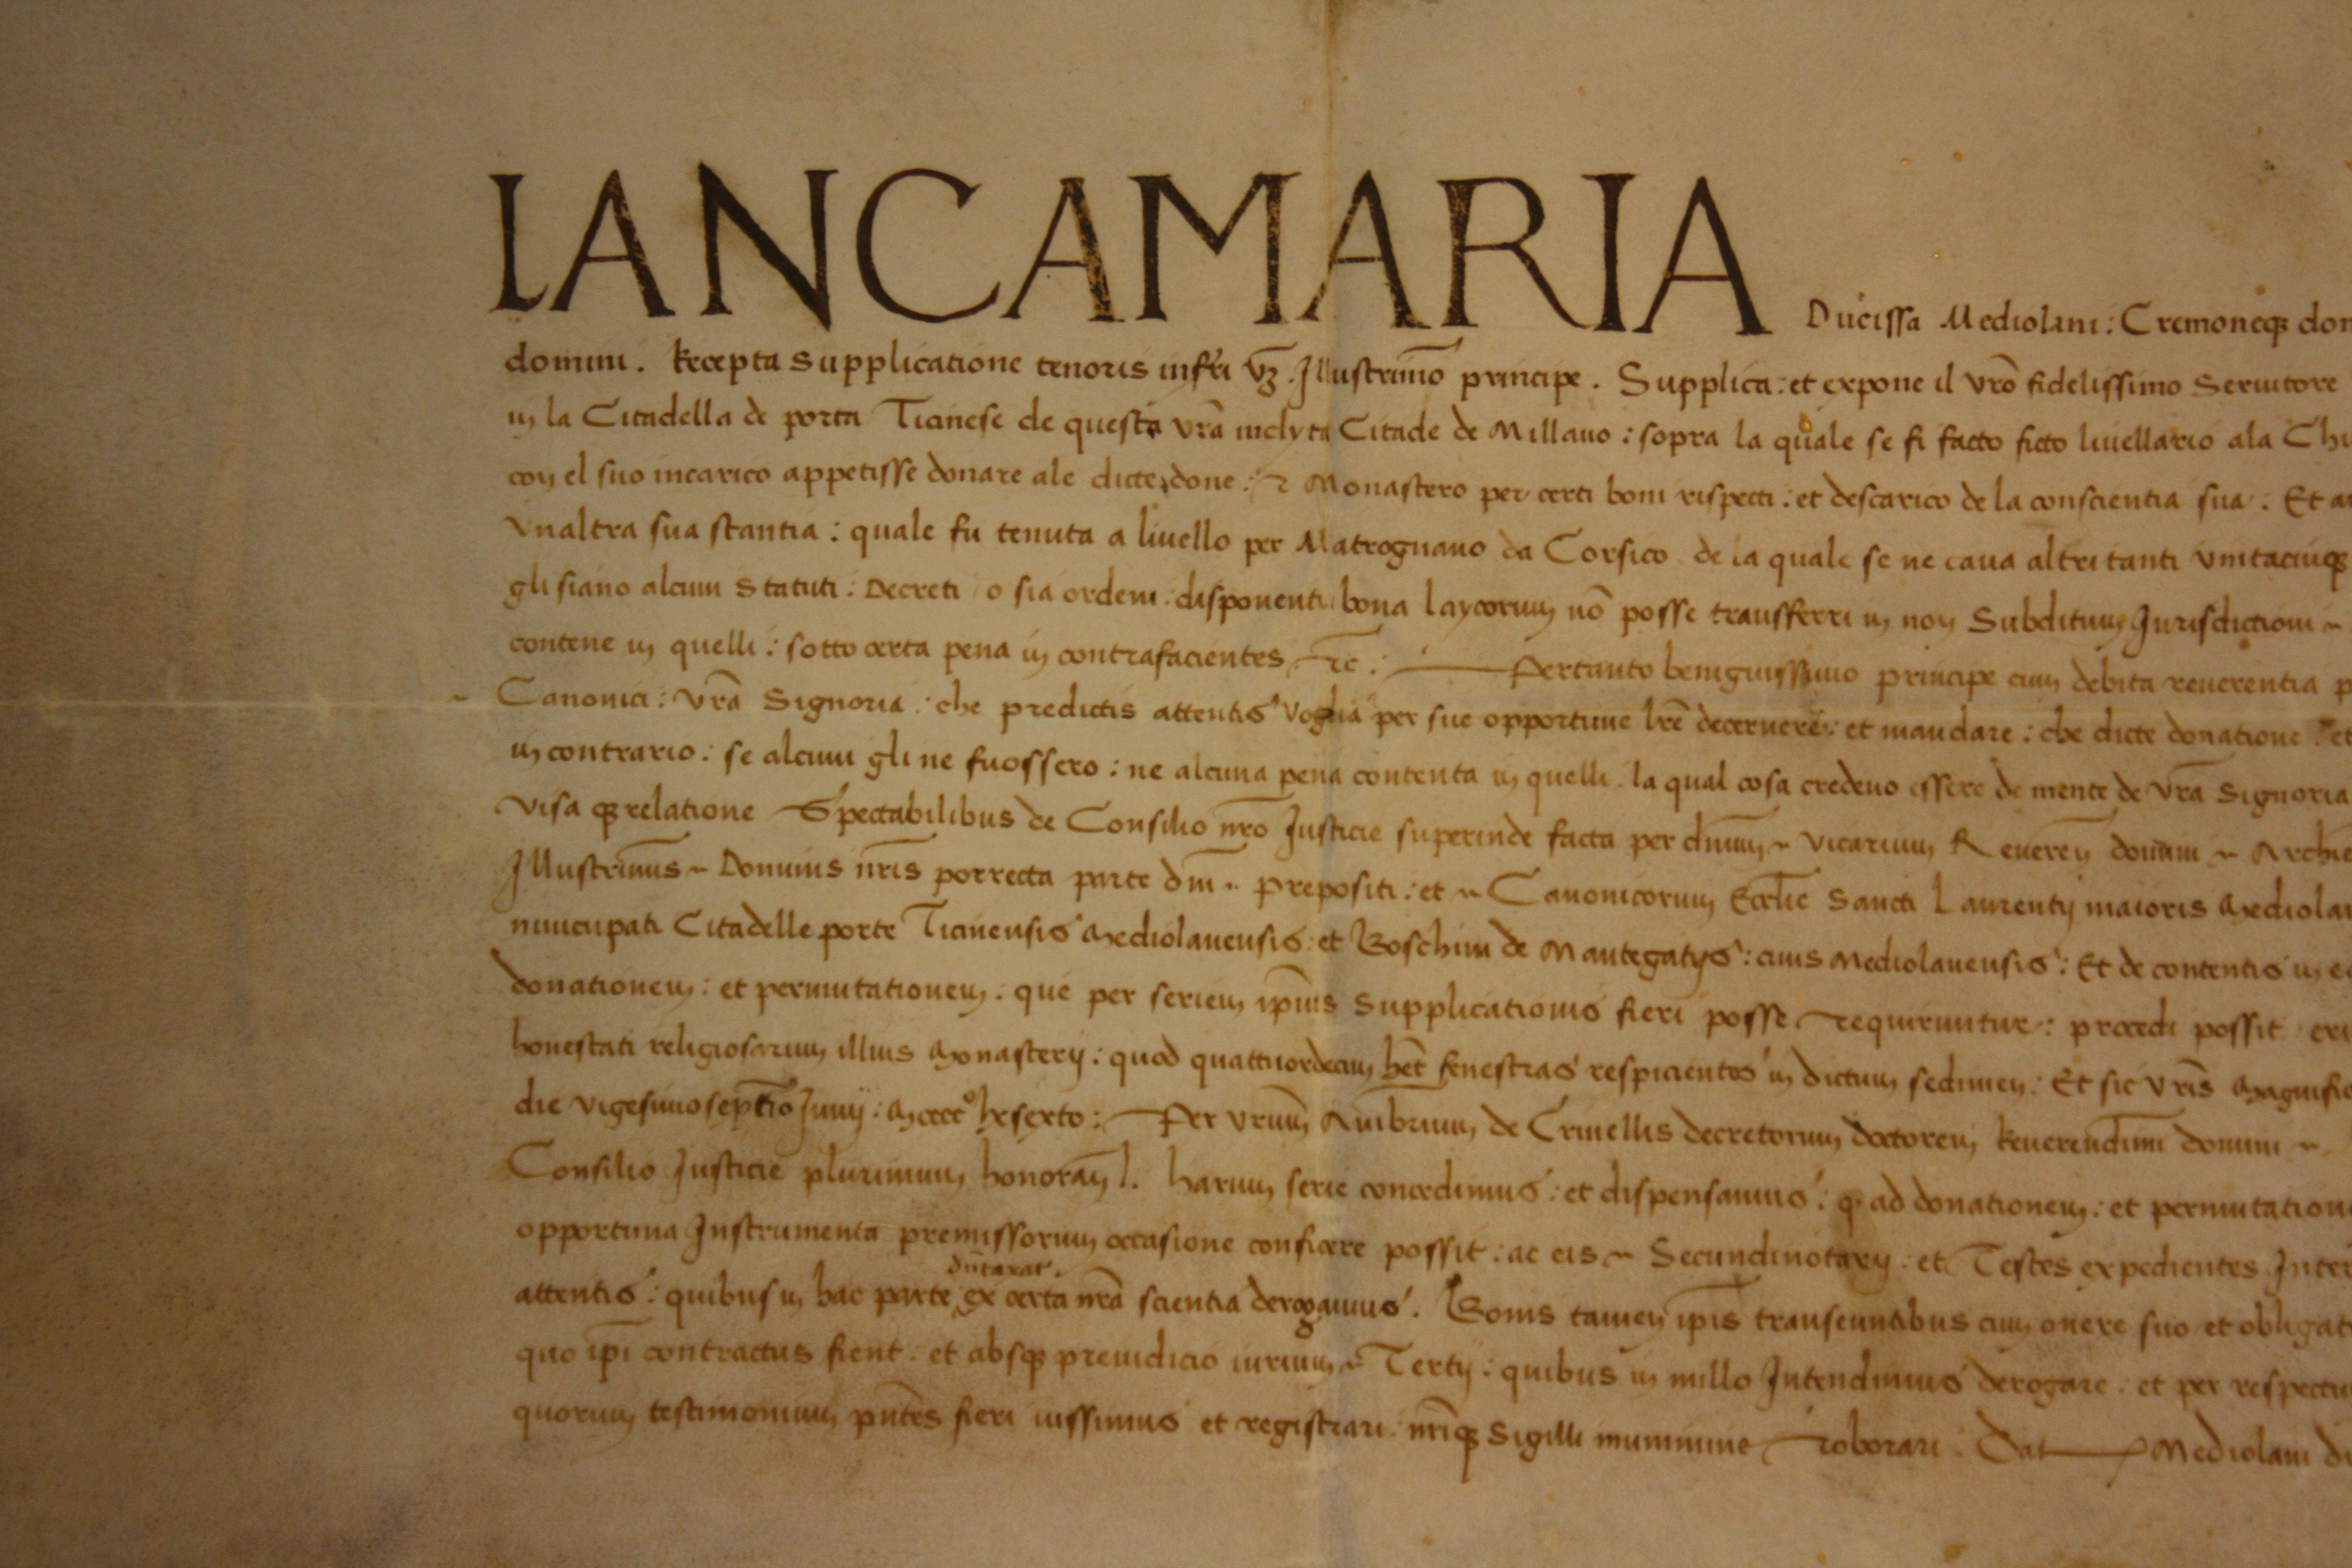 LANCAMARIA Ducissa Mediolani : Cremoneq3 dom
domini . Recepta supplicatione tenoris infrĩ vz̃ . Illustrimõ principe . Supplica : et expone il vrõ fidelissimo Seruitore
in la Citadella de porta Ticinese de questa vrã inclyta Citade de Millano : sopra la quale se fi facto ficto liuellario ala Chi
con el suo incarico appetisse donare ale dicte done : et Monastero per certi boni rispecti : et descarico de la conscientia sua : Et a
vnaltra sua stantia : quale fu tenuta a liuello per Matrognano da Corsico de la quale se ne caua altri tanti vintacinq3
gli siano alcuni statuti : Decreti o sia ordeni : disponenti bona laycorum nõ posse transferri in non Subditum Jurisdictioni ~
contene in quelli : sotto certa pena in contrafacientes etc̃ : Pertanto benignissimo principe cum debita reuerentia p
Canonici : vrã Signoria : che predictis attentis voglia per sue opportune lrẽ decernere : et mandare : che dicte donatione : et
in contrario : se alcuni gli ne fuossero : ne alcuna pena contenta in quelli . la qual cosa credeno essere de mente de vrã Signoria
visa q3 relatione Spectabilibus de Consilio nrõ Justicie superinde facta per dñum ~ vicarium Reueren̄ domini ~ Archie
Illustrimũs ~ Dominis nrĩs porrecta parte dñi ~ prepositi : et ~ Canonicorum Eccl̃ie Sancti Laurentij maioris Mediolan
nuncupati Citadelle porte Ticinensis Mediolanensis : et Boschini de Mantegatijs : ciuis Mediolanensis : Et de contentis in e
donationem : et permutationem : que per seriem ip̃ius supplicationis fieri posse requiruntur : procedi possit eri
honestati religiosarum illius Monasterij : quod quattuordecim hẽt fenestras respicientes in dictum sedimen : Et sic vrĩs Magnific
die vigesimoseptĩo Junij : Mcccc⁰ lxsexto : Per vrũm Ambrium de Criuellis decretorum doctorem Reuerendim̃i domini ~
Consilio Justicie plurimum honoran̄ l . harum serie concedimus : et dispensamus : q̃ ad donationem : et permutation
opportuna Instrumenta premissorum occasione conficere possit : ac eis ~ Secundinotarij : et Testes expedientes Inter
dũtaxat .
attentis : quibus in hac parte ex certa nrã scientia derogamus . Bonis tamen ip̃is transeuntibus cum onere suo et obligat
quo ip̃i contractus fient : et absq3 preiudicio iurium ~ Tertij : quibus in nullo Intendimus derogare . et per respectu
quorum testimonium pñtes fieri iussimus et registrari : nrĩq3 Sigilli munimine roborari . Dat Mediolani di